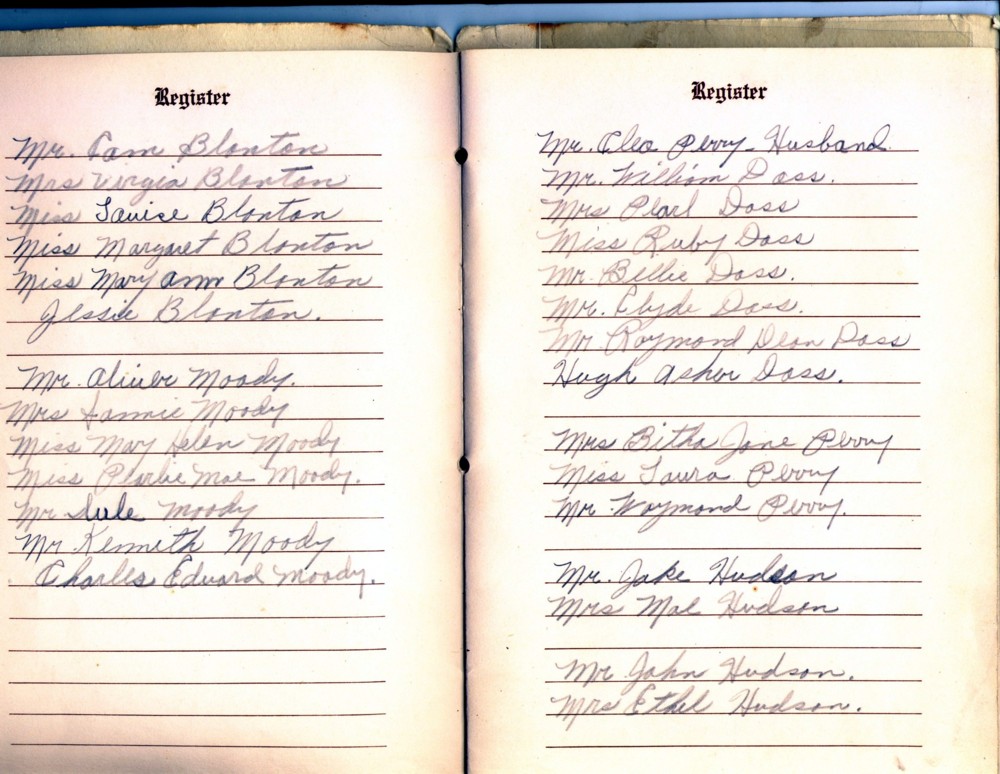 Register
Mr. Cam Blanton
Mrs Virgia Blanton
Miss Louise Blanton
Miss Margaret Blanton
Miss Mary Ann Blanton
Jessie Blanton.
Mr. Oliver Moody.
Mrs Fannie Moody
Miss Mary Helen Moody
Miss Pearlie Mae Moody.
Mr Lule Moody
Mr. Kennith Moody
Charles Edward Moody.
Register
Mr. Cleo Perry - Husband
Mr. William Dass.
Mrs Pearl Dass
Miss Ruby Dass
Mr. Billie Dass.
Mr. Clyde Dass.
Mr Raymond Dean Dass
Hugh Asher Dass.
Mrs Bitha Jane Perry
Miss Laura Perry
Mr. Waymond Perry.
Mr. Jake Hudson
Mrs Mae Hudson
Mr John Hudson.
Mrs Ethel Hudson.